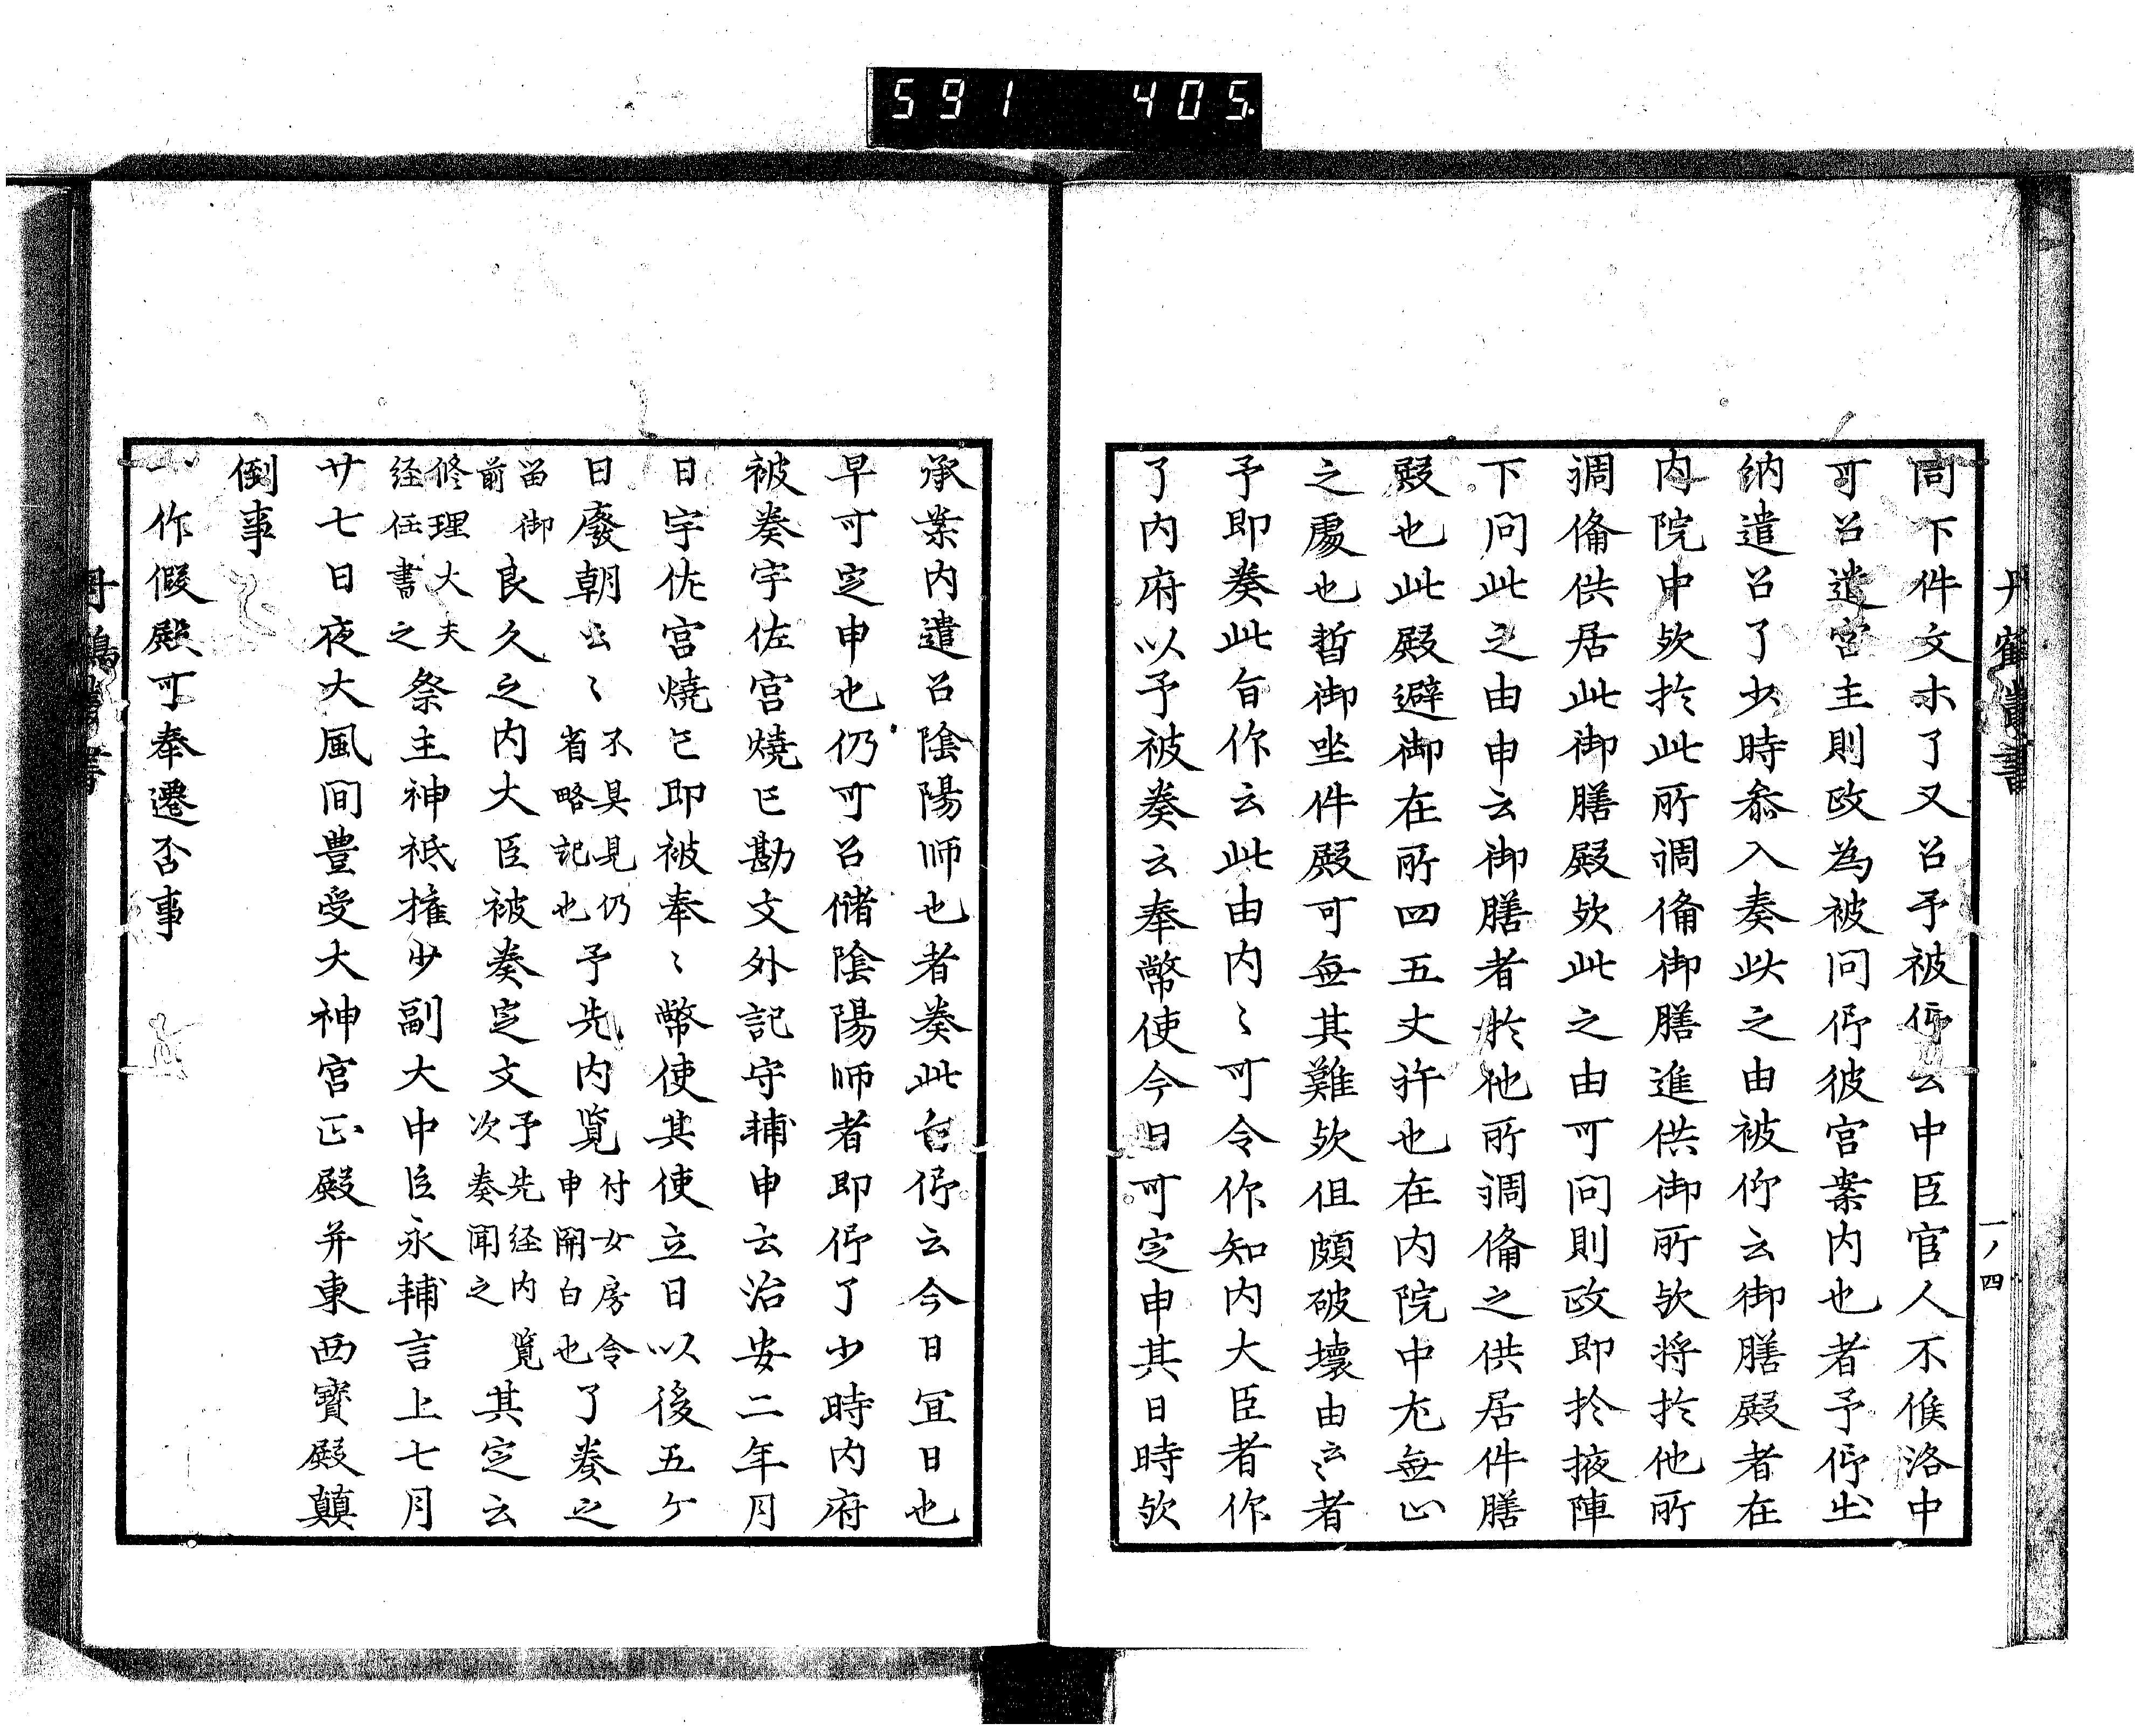 591 405
丹鶴叢書
一ノ四
同下件文木了又召予被仰云中臣官人不候洛中
可召遣宮主則政為被問仰彼宮案内也者予仰出
納遣召了少時叅入奏此之由被仰云御膳殿者在
内院中欤扵此所調俻御膳進供御所欤将扵他所
調俻供居此御膳殿欤此之由可問則政即扵掖陣
下問此之由申云御膳者扵他所調俻之供居件膳
殿也此殿避御在所四五丈許也在内院中尤無止
之處也暫御坐件殿可無其難欤但頗破壞由云〻者
予即奏此旨作云此由内〻可令作知内大臣者作
了内府以予被奏云奉幣使今日可定申其日時欤
承案内遣召陰陽師也者奏此旨仰云今日宜日也
早可定申也仍可召儲陰陽師者即仰了少時内府
被奏宇佐宮燒亡勘文外記守輔申云治安二年月
日宇佐宮燒亡即被奉〻幣使其使立日以後五ケ
日廢朝云〻不具見仍省略記也予先内覧付女房令申関白也了奏之
留御前良久之内大臣被奏定文予先経内覧次奏聞之其定云
修理大夫経任書之祭主神祇權少副大中臣永輔言上七月
廿七日夜大風間豊受大神宮正殿并東西寳殿顛
倒事
一作假殿可奉遷否事
丹鶴叢書